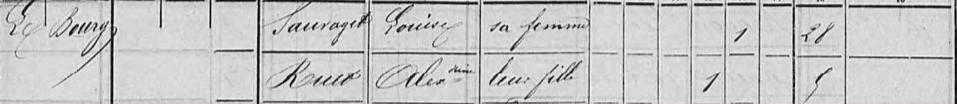 Le Bourg Sauvaget Louise sa femme 1 28
Ruer Alexdrine leur fille 1 5